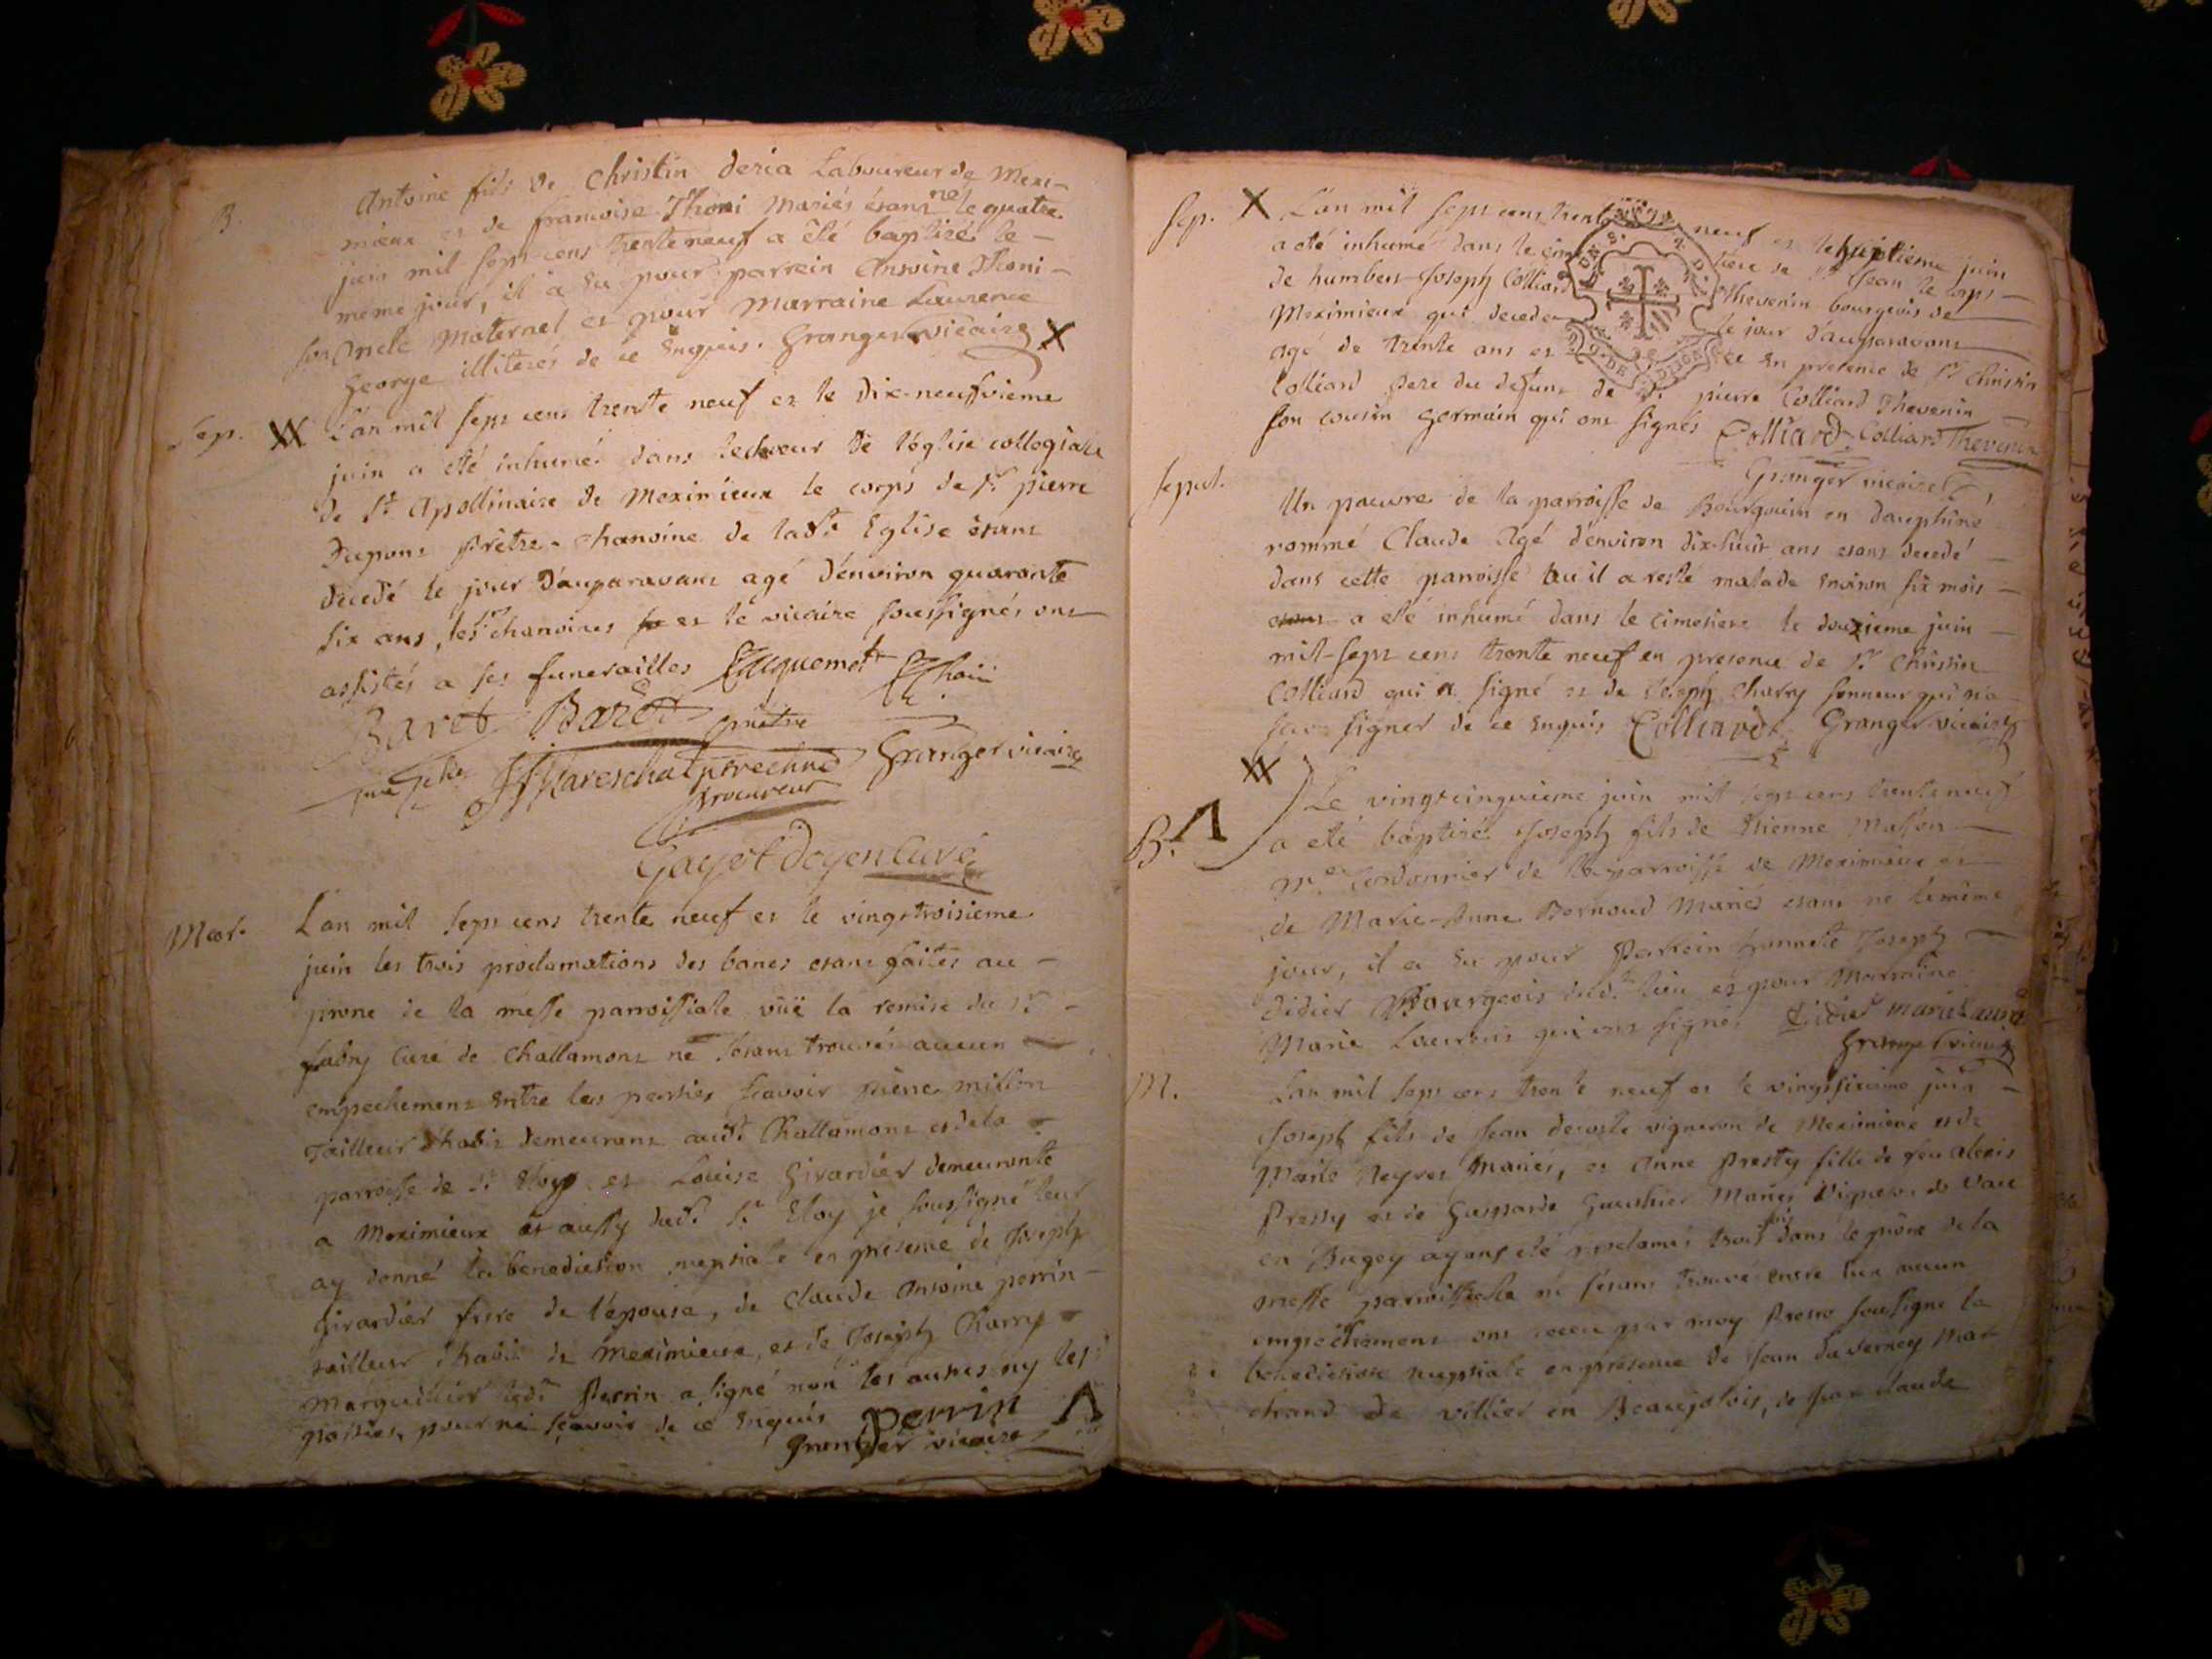 B.
Antoine fils de Christin deria Laboureur de Mexi-
mieux et de francoise Thoni Mariés étant né le quatre
juin mil sept cens trente neuf a été baptizé le
meme jour, il a eu pour parrein Antoine Thoni
son Oncle Maternel et pour Marraine Laurence
George illiterés de ce Enquis. Granger vicaire X
Sep.
L'an mil sept cens trente neuf et le dix-neufvieme
juin a été inhumé dans le chœur de l'église collegiale
de St. Apollinaire de Meximieux le corps de Sr. pierre
Dupont Prêtre chanoine de lad.e Eglise étant
decedé le jour d'auparavant agé d'environ quarante
six ans, les srs chanoines et le vicaire soussignés ont
assistés a ses funerailles Jacquemet
Baret Baret prêtre
Mareschal Granger vicaire
procureur
Gayot Doyen Curé
Mar.
L'an mil sept cens trente neuf et le vingt troisieme
juin les trois proclamations des bancs etant faites au
prone de la messe parroissiale vüe la remise du Sr.
fabry Curé de Challamont ne s'etant trouvés aucun
empechement Entre les parties sçavoir pierre millon
Tailleur d'habis demeurant aud.t Challamont et de la
parroisse de St. Eloy et Louise Girardier demeurante
a Meximieux et aussy dud.t St. Eloy je soussigné leur
ay donné la benediction nuptiale en presence de Joseph
girardier frere de l'epouse, de Claude Antoine perrin
tailleur d'habis de Meximieux, et de Joseph Charry
Marguillier led.t Perrin a signé non les autres ny les
parties, pour ne sçavoir de ce Enquis perrin
Granger vicaire
Sep. X
L'an mil sept cens trente neuf et le huitieme juin
a été inhumé dans le cimetiere de St. Jean le corps
de humbert-Joseph Colliard Thevenin bourgeois de
Meximieux qui deceda le jour d'auparavant
agé de trente ans et en presence de Sr. Christin
Colliard Pere du defunt de Sr. pierre Colliard Thevenin
son cousin germain qui ont signés Colliard Colliard Thevenin
Granger vicaire
Sepul.
Un pauvre de la parroisse de Bourgouin en dauphiné
nommé Claude Agé d'environ dix-huit ans etant decedé
dans cette parroisse ou il a resté malade environ six mois
a eté inhumé dans le cimetiere le douzieme juin
mil-sept cens trente neuf en presence de Sr. Christin
Colliard qui a signé et de Joseph Charry sonneur qui n'a
sceu signer de ce Enquis Colliard Granger vicaire
B.
Le vingtcinquieme juin mil sept cens trente neuf
a eté baptizé Joseph fils de Etienne Mason
Me. Cordonnier de la parroisse de Meximieux et
de Marie-Anne Bernoud Mariés etant né le même
jour, il a eu pour Parrein honnete Joseph
didier Bourgeois dud.t lieu et pour Marraine
Marie Laurens qui ont signés Didier marie Laurens
Granger vicaire
M.
L'an mil sept cens trente neuf et le vingtsixieme juin
Joseph fils de Jean vigneron de Meximieux et de
Marie Neyret Mariés, et Anne Presty fille de feu Alexis
Presty et de Gasparde Gauthier Mariés Vigneron de Vau
en Bugey ayant été proclamés trois fois dans le prône de la
messe parroissialle ne s'etant trouvé entre eux aucun
empechement ont receu par moy Pretre sousigné la
benediction nuptiale en presence de Jean Duverney Mar
chand de villier en Beaujolois, de Jean claude